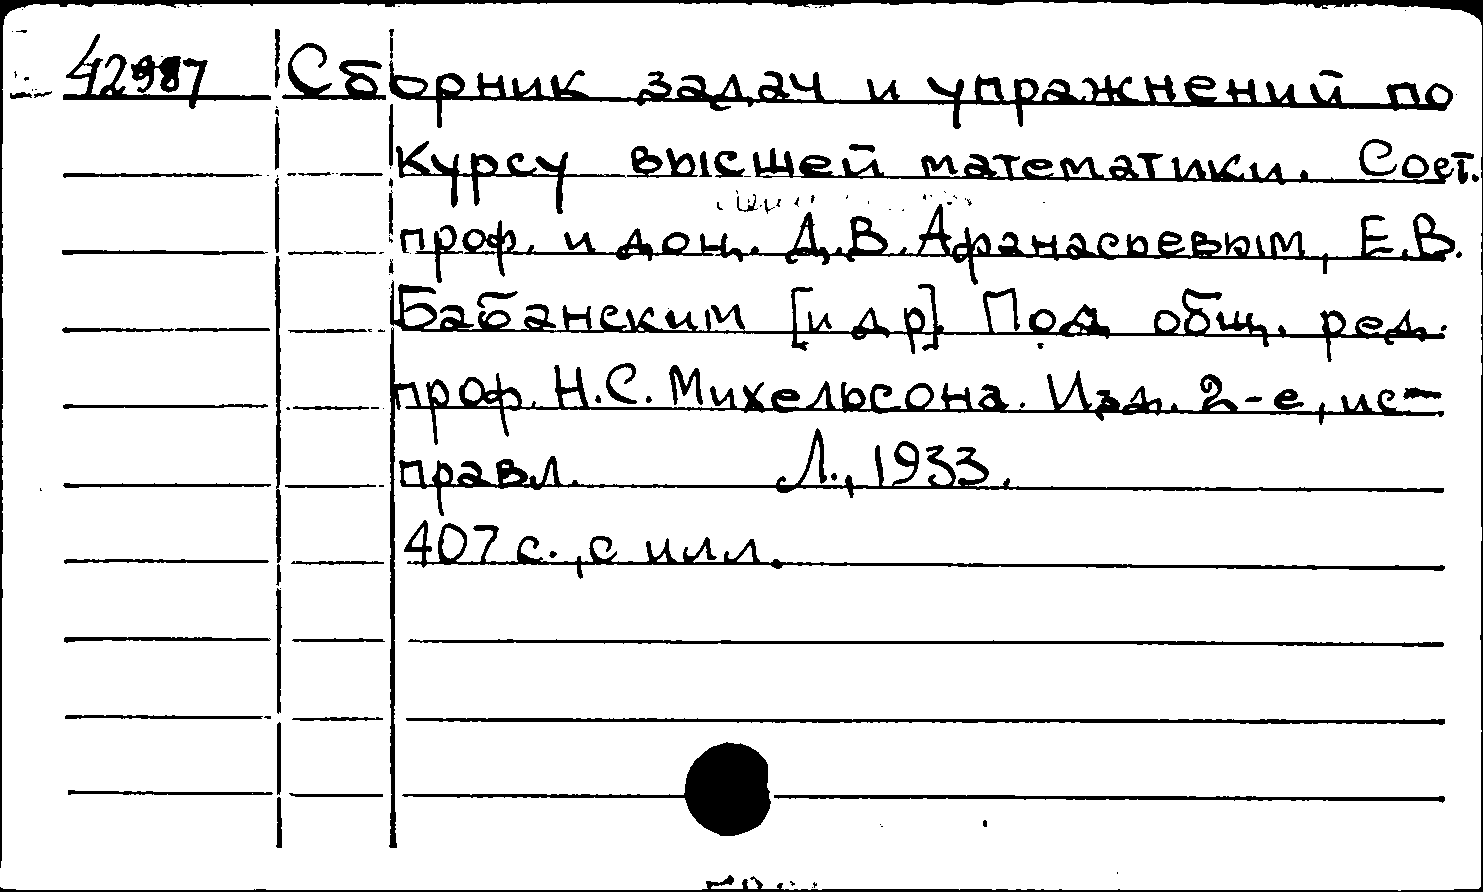 42987 Сборник задач и упражнений по
курсу высшей математики. Сост.
проф. и доц. Д.В. Афанасьевым, Е.В.
Бабанским [и др]. Под общ. ред.
проф. Н.С. Михельсона. Изд. 2-е, ис-
правл. Л., 1933.
407 с., с илл.